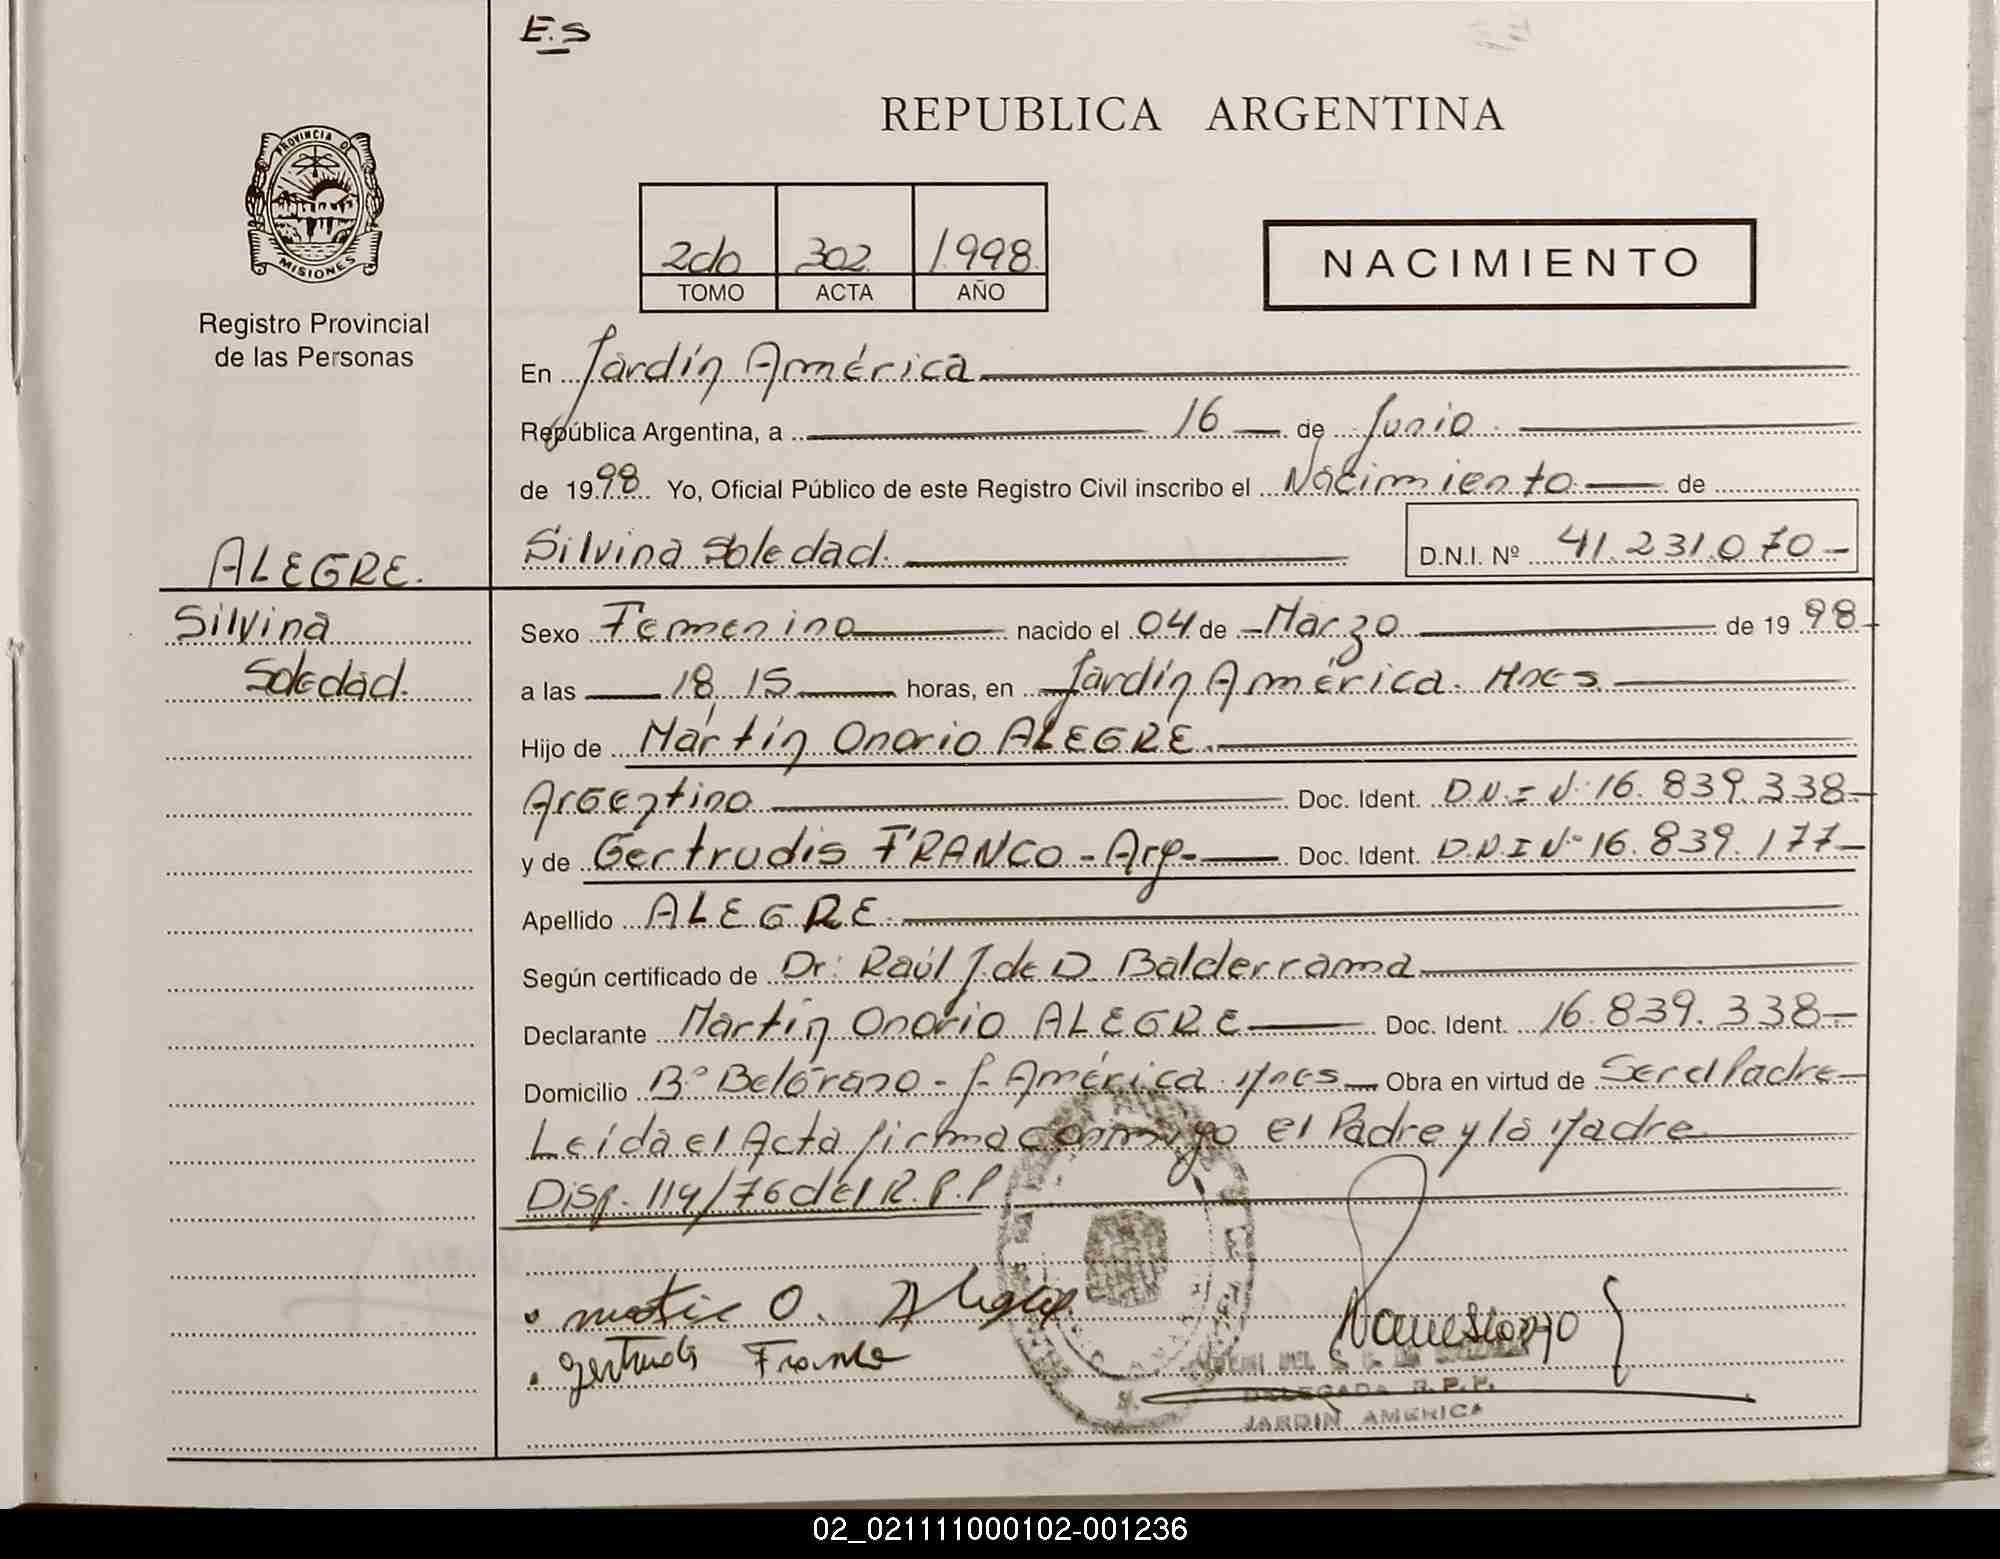 E.S
REPUBLICA ARGENTINA
PROVINCIA DE
MISIONES
Registro Provincial
de las Personas
2do 302 1.998.
TOMO ACTA AÑO
NACIMIENTO
En Jardín América
República Argentina, a 16 de Junio
de 1998. Yo, Oficial Público de este Registro Civil inscribo el Nacimiento de
Silvina Soledad. D.N.I. Nº 41.231.070-
ALEGRE.
Silvina
Soledad.
Sexo Femenino nacido el 04 de Marzo de 1998
a las 18 15 horas, en Jardín América. Mnes
Hijo de Martín Onorio ALEGRE.
Argentino Doc. Ident. D.N.I N: 16.839.338-
y de Gertrudis FRANCO - Arg- Doc. Ident. D.N.I Nº 16.839.177-
Apellido ALEGRE.
Según certificado de Dr: Raúl J. de D. Balderrama
Declarante Martín Onorio ALEGRE Doc. Ident. 16.839.338-
Domicilio Bº Belgrano - J. América. Mnes Obra en virtud de Ser el Padre
Leída el Acta firma conmigo el Padre y la Madre
Disp. 114/76 del R.P.P
O. Alegre
Gertrudis Franco
DELEGADA R.P.P.
JARDIN AMERICA
02_021111000102-001236